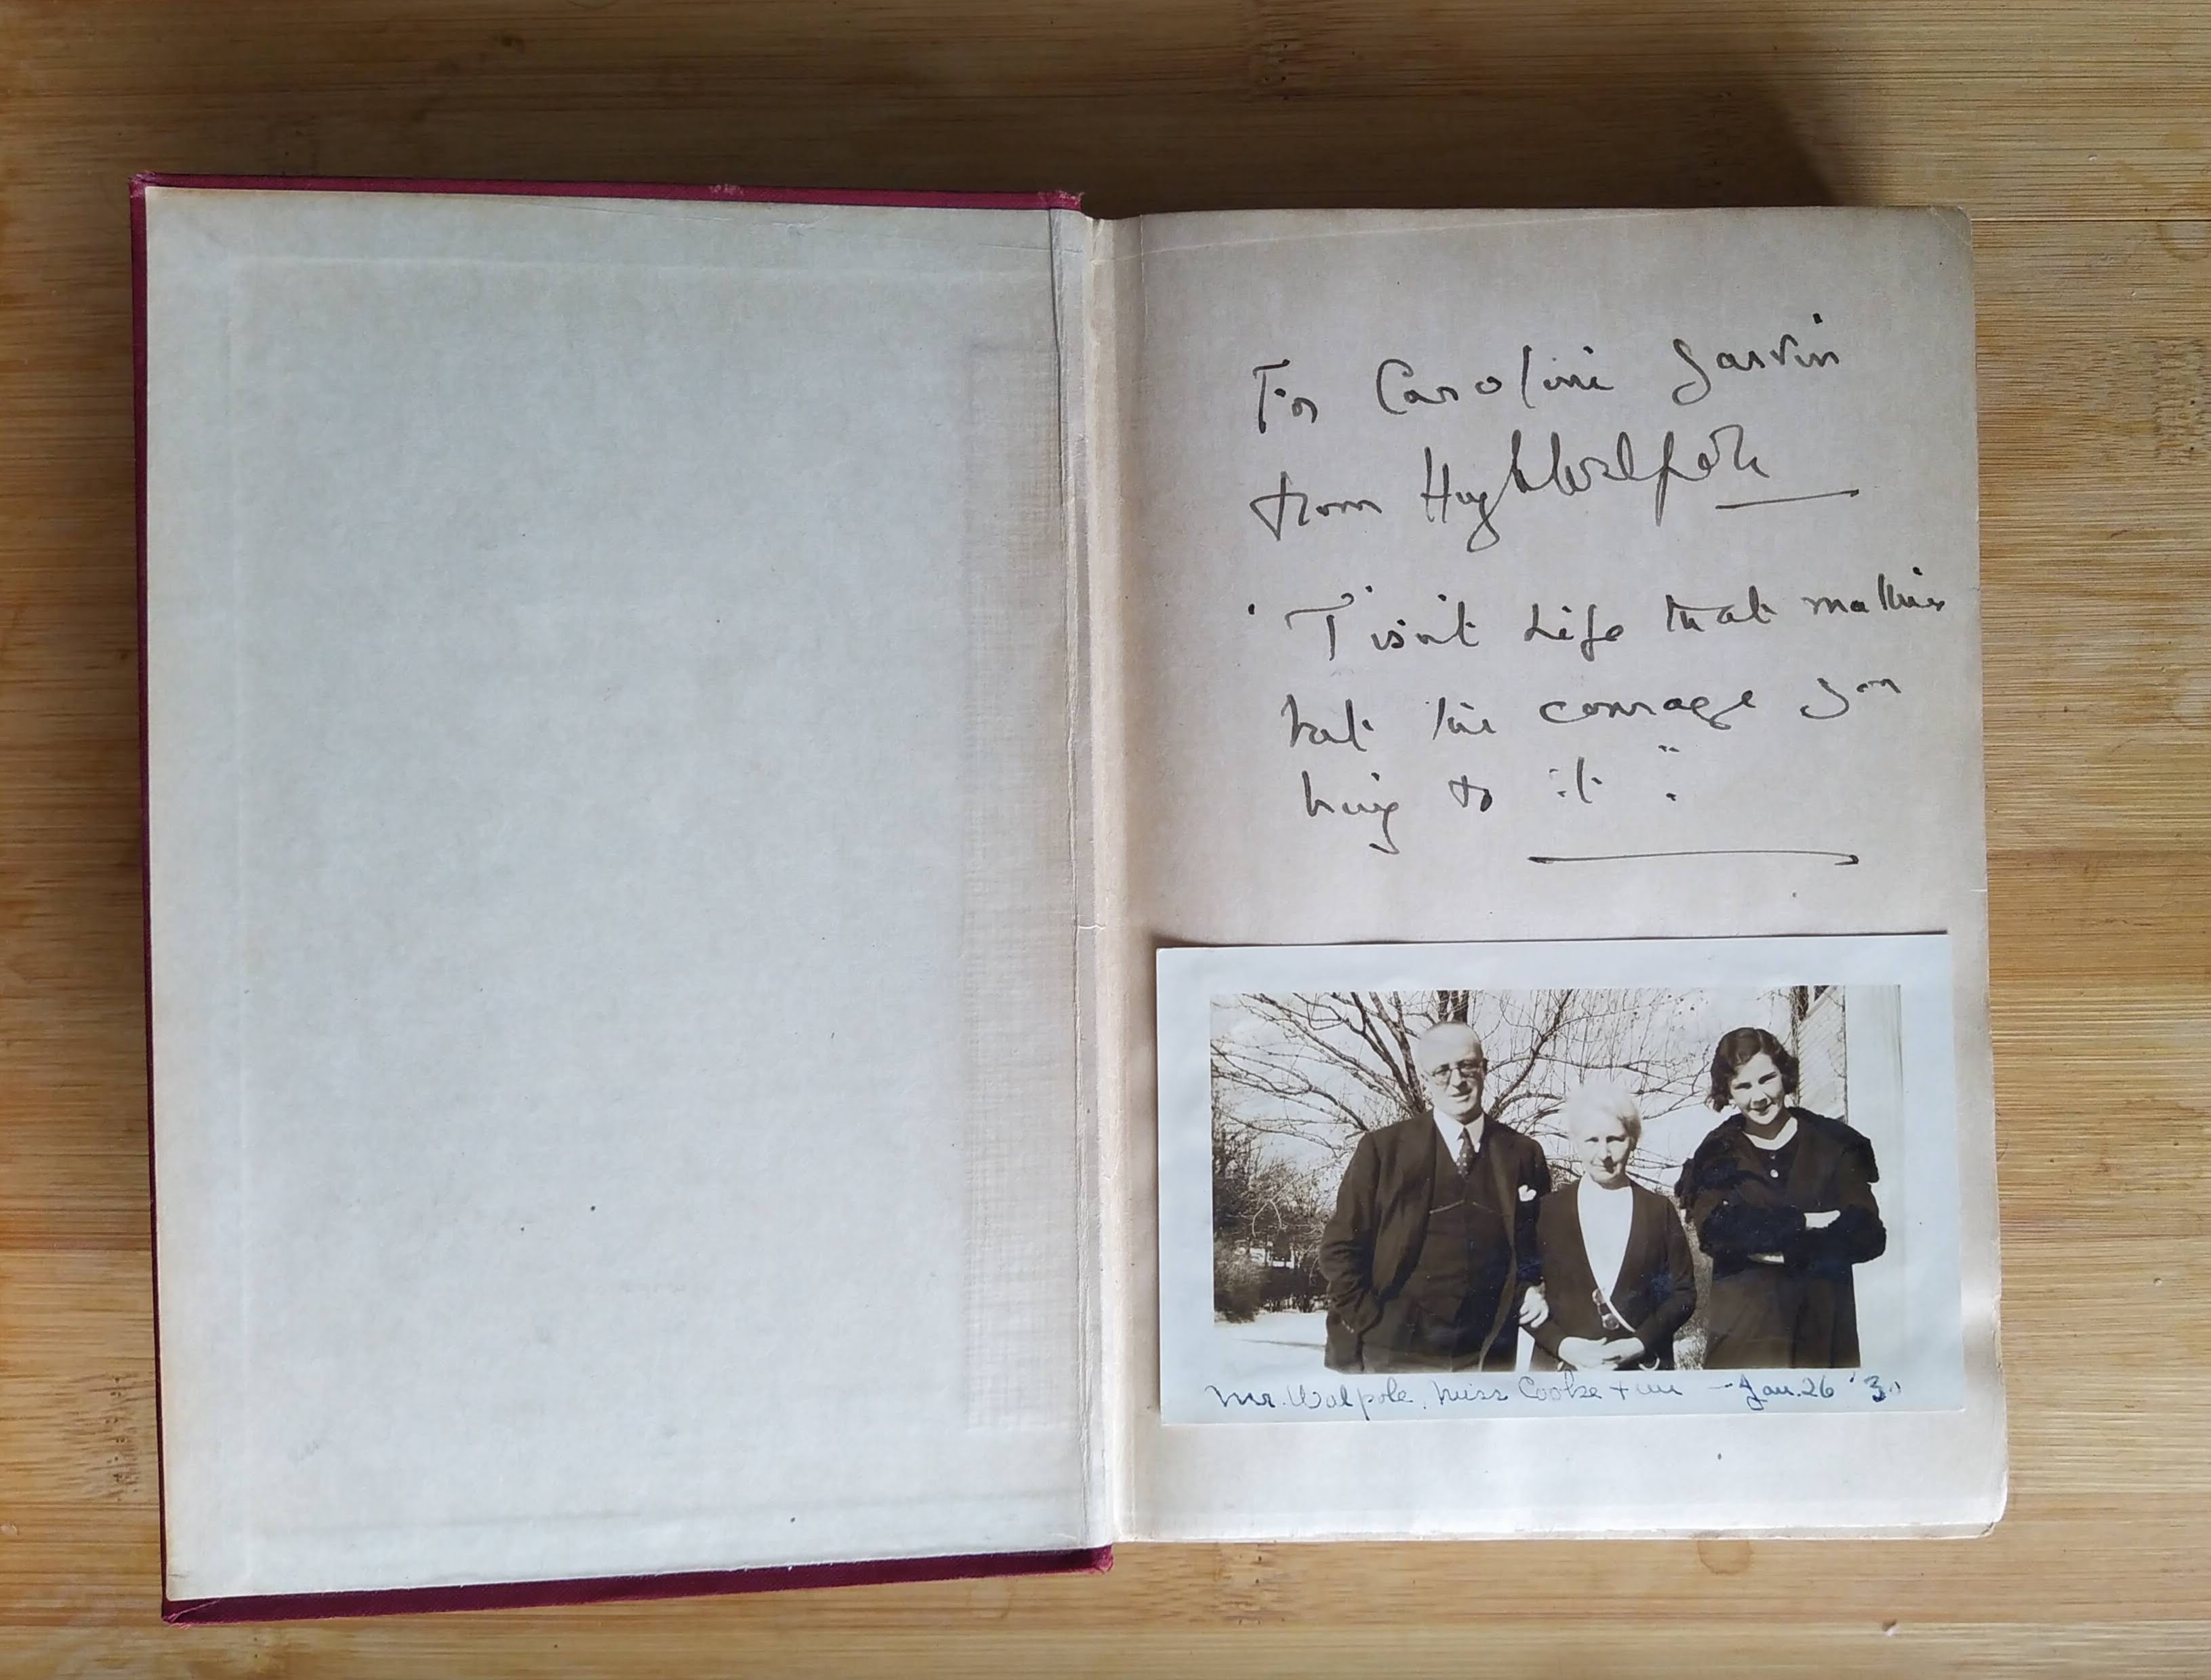 For Caroline Garvin
from Hugh Walpole
'T'isn't Life that matters
but the courage you
bring to it".
Mr. Walpole, Miss Cooke + me — Jan. 26 '30